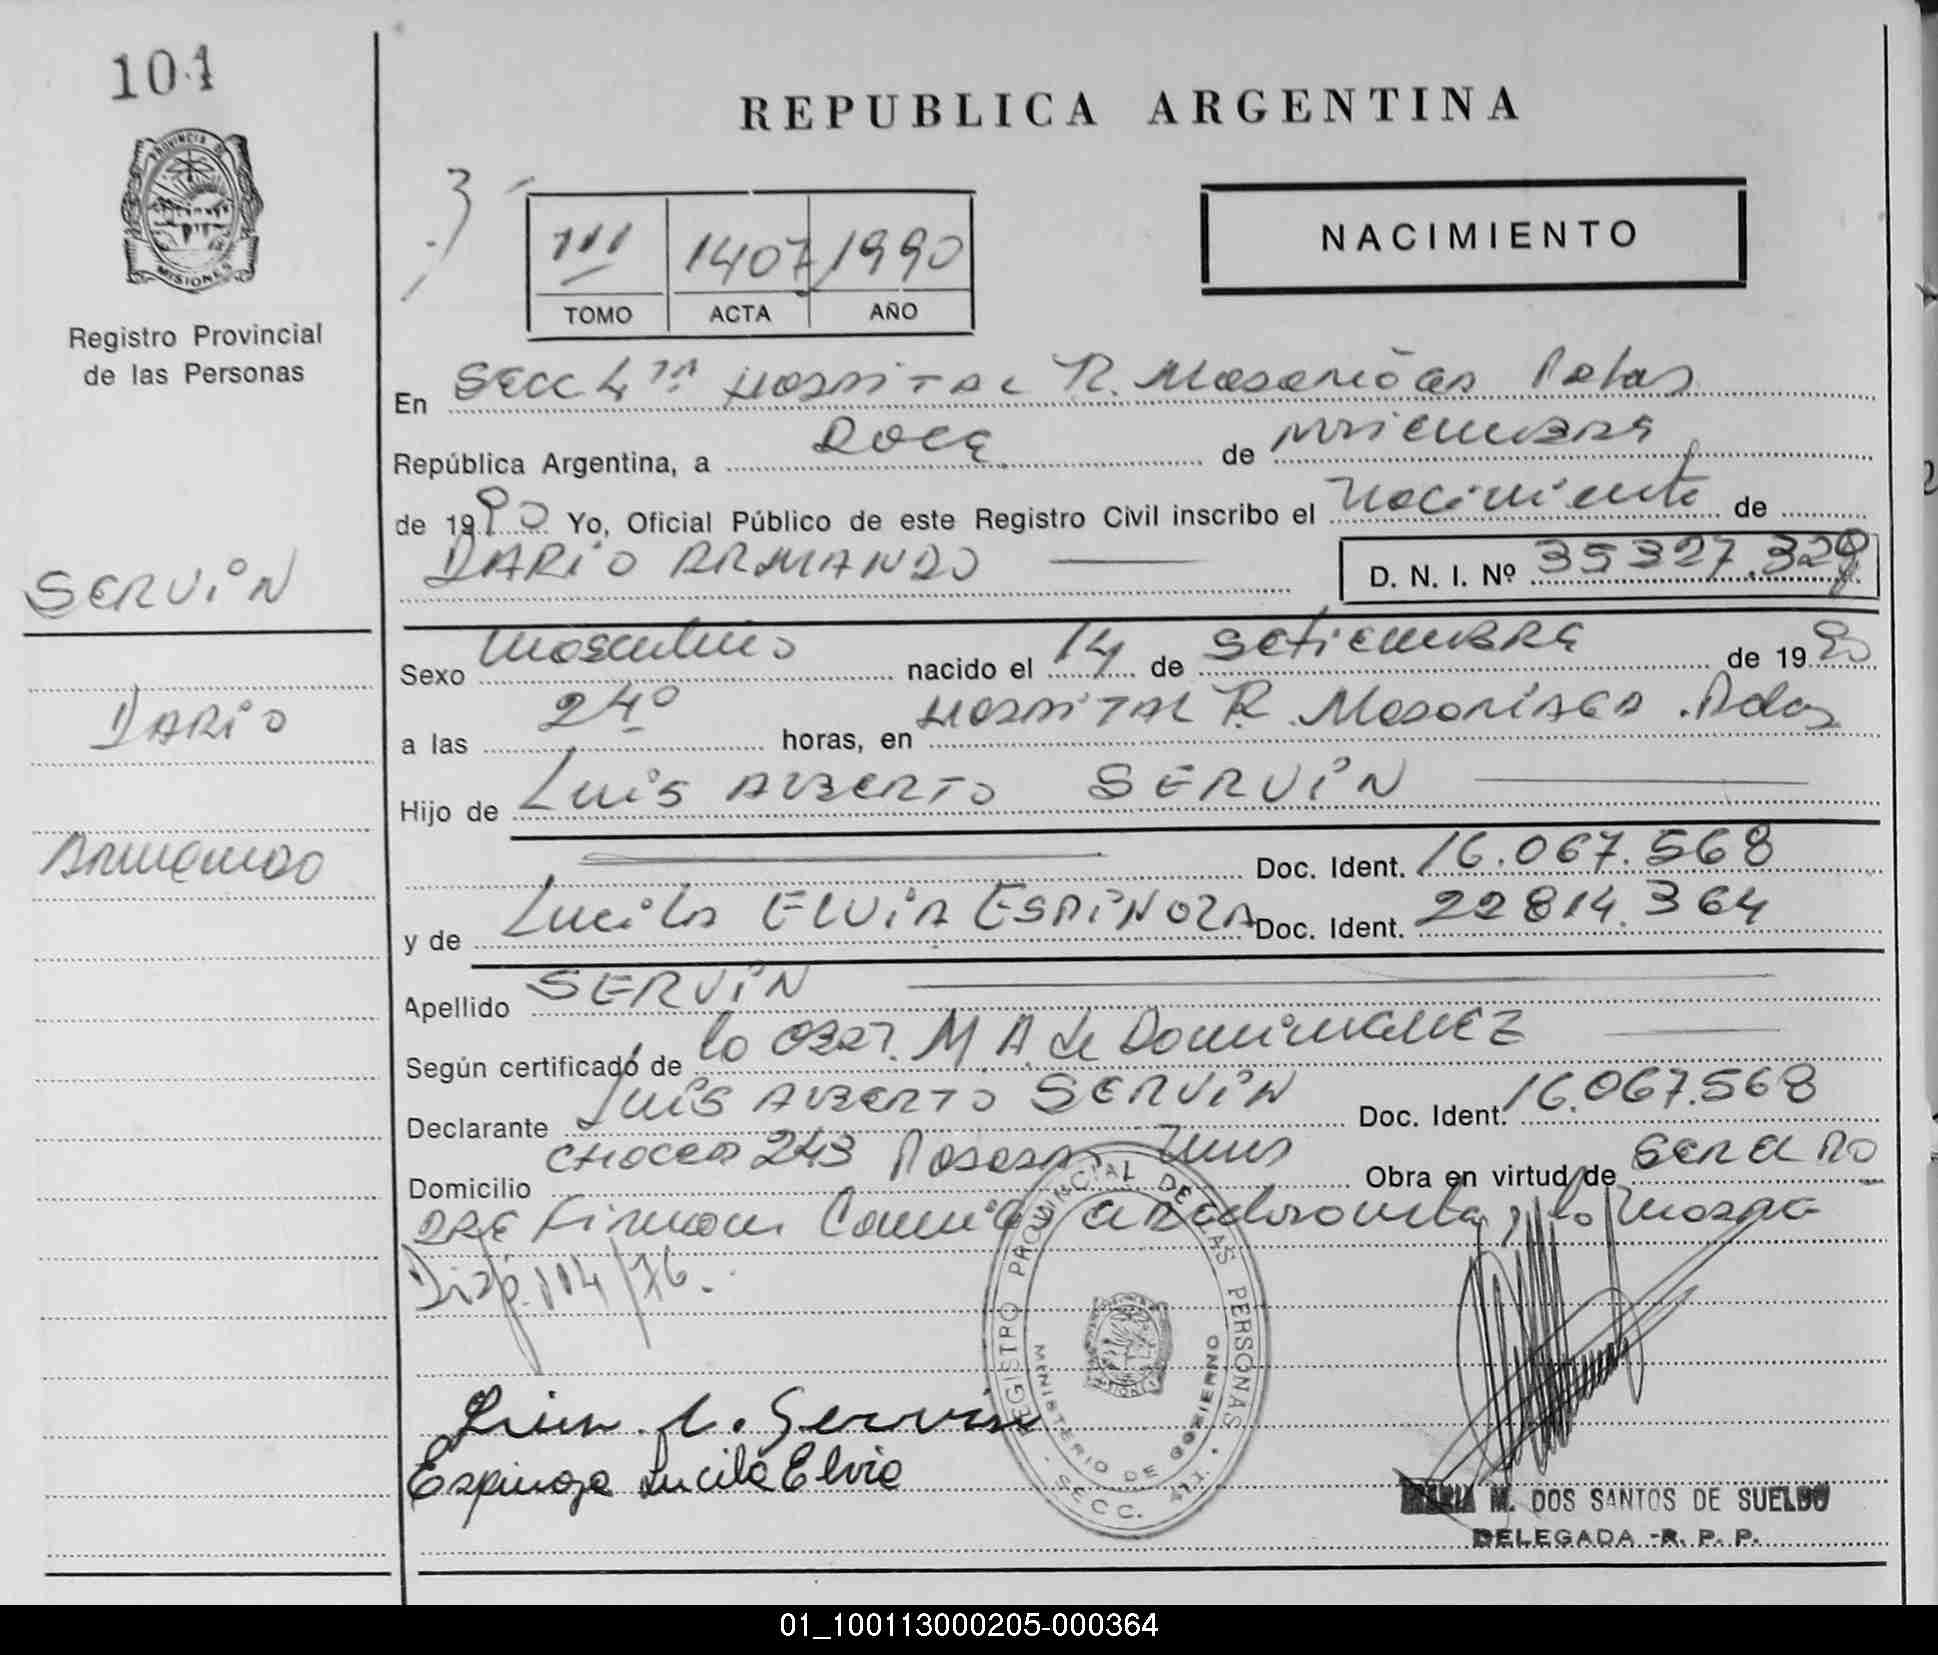 104
PROVINCIA DE
MISIONES
Registro Provincial
de las Personas
SERVIN
DARIO
ARMANDO
REPUBLICA ARGENTINA
3
III 1407 1990
TOMO ACTA AÑO
NACIMIENTO
En SECC 4ta HOSPITAL R. Madariaga Pdas
República Argentina, a DOCE de NOVIEMBRE
de 1990 Yo, Oficial Público de este Registro Civil inscribo el Nacimiento de
DARIO ARMANDO D. N. I. Nº 35327.329
Sexo Masculino nacido el 14 de SETIEMBRE de 1990
a las 24º horas, en HOSPITAL R. Madariaga Pdas
Hijo de Luis ALBERTO SERVIN
Doc. Ident. 16.067.568
y de Lucila ELVIA ESPINOZA Doc. Ident. 22814.364
Apellido SERVIN
Según certificado de la OBST. M A. de DOMINGUEZ
Declarante Luis ALBERTO SERVIN Doc. Ident. 16.067.568
Domicilio 243 Posadas Obra en virtud de SER EL PA
DRE Firman la
Disp. 114/76.
Luis A. Servin
Espinoza Lucila Elvia
REGISTRO PROVINCIAL DE LAS PERSONAS
MINISTERIO DE GOBIERNO
SECC. 4ta.
MARIA M. DOS SANTOS DE SUELDO
DELEGADA -R. P. P.
01_100113000205-000364